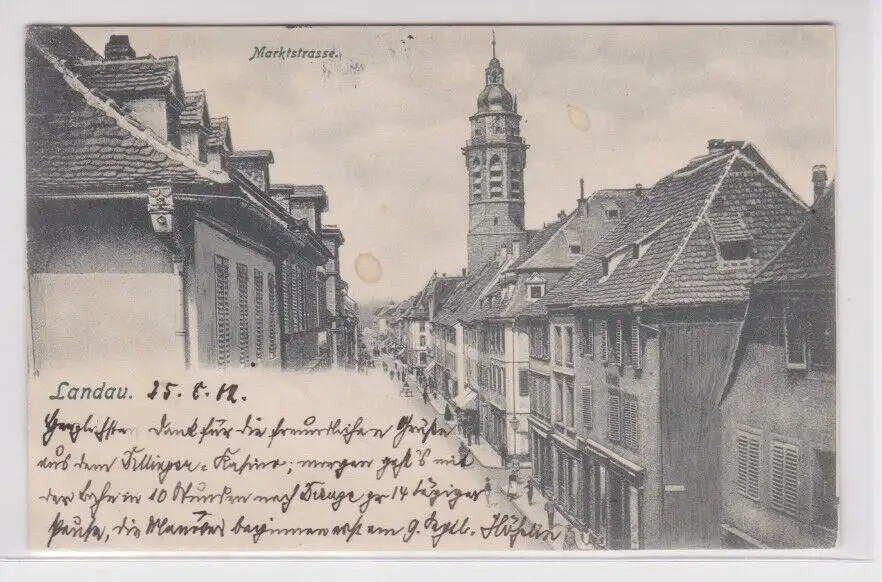 Marktstrasse.
Landau. 25. 8. 02.
Herzlichsten Dank für die freundlichen Grüße
aus dem Casino; morgen geht's mit
der Bahn in 10 Stunden nach 14 tägiger
Pause, die Manöver beginnen erst am 9. Septb.